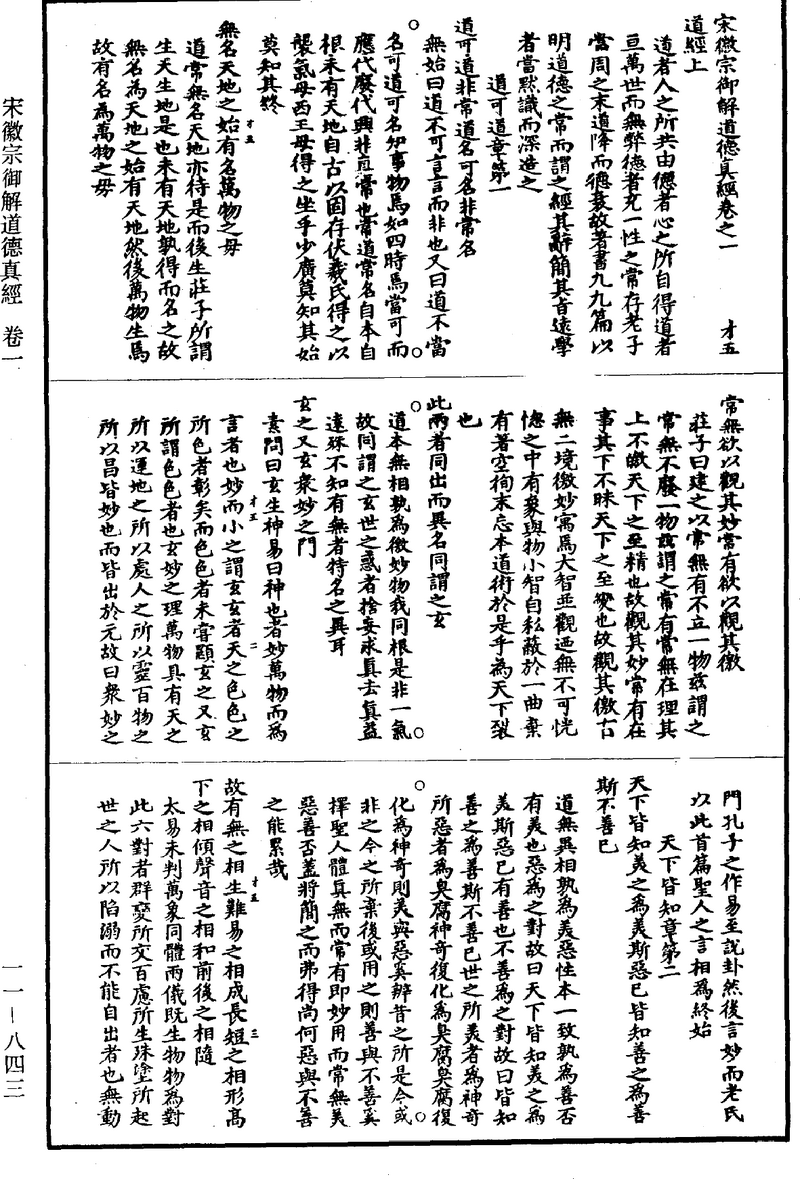 宋徽宗御解道德真經卷之一　才五
道經上
道者人之所共由德者心之所自得道者
亘萬世而無弊德者充一性之常存老子
當周之末道降而德衰故著書九九篇以
明道德之常而謂之經其辭簡其旨遠學
者當默識而深造之
道可道章第一
道可道非常道名可名非常名
無始曰道不可言言而非也又曰道不當
名可道可名知事物焉如四時焉當可而
應代廢代興非真常也常道常名自本自
根未有天地自古以固存伏羲氏得之以
襲氣母西王母得之坐乎少廣莫知其始
莫知其終
無名天地之始有名萬物之母
道常無名天地亦待是而後生莊子所謂
生天生地是也未有天地孰得而名之故
無名為天地之始有天地然後萬物生焉
故有名為萬物之母
常無欲以觀其妙常有欲以觀其徼
莊子曰建之以常無有不立一物茲謂之
常無不廢一物茲謂之常有常無在理其
上不皦天下之至精也故觀其妙常有在
事其下不昧天下之至變也故觀其徼古
無二境徼妙寓焉大智並觀迺無不可恍
惚之中有象與物小智自私蔽於一曲棄
有著空徇末忘本道術於是乎為天下裂
也
此兩者同出而異名同謂之玄
道本無相孰為徼妙物我同根是非一氣
故同謂之玄世之惑者捨妄求真去真益
遠殊不知有無者特名之異耳
玄之又玄衆妙之門
素問曰玄生神易曰神也者妙萬物而為
言者也妙而小之謂玄玄者天之色色之
所色者彰矣而色色者未嘗顯玄之又玄
所謂色色者也玄妙之理萬物具有天之
所以運地之所以處人之所以靈百物之
所以昌皆妙也而皆出於元故曰衆妙之
門孔子之作易至說卦然後言妙而老氏
以此首篇聖人之言相為終始
天下皆知章第二
天下皆知美之為美斯惡已皆知善之為善
斯不善已
道無異相孰為美惡性本一致孰為善否
有美也惡為之對故曰天下皆知美之為
美斯惡已有善也不善為之對故曰皆知
善之為善斯不善已世之所美者為神奇
所惡者為臭腐神奇復化為臭腐臭腐復
化為神奇則美與惡奚辨昔之所是今或
非之今之所棄後或用之則善與不善奚
擇聖人體真無而常有即妙用而常無美
惡善否蓋將簡之而弗得尚何惡與不善
之能累哉
故有無之相生難易之相成長短之相形高
下之相傾聲音之相和前後之相隨
太易未判萬象同體兩儀既生物物為對
此六對者群變所交百慮所生殊塗所起
世之人所以陷溺而不能自出者也無動
宋徽宗御解道德真經　卷一
一一－八四三